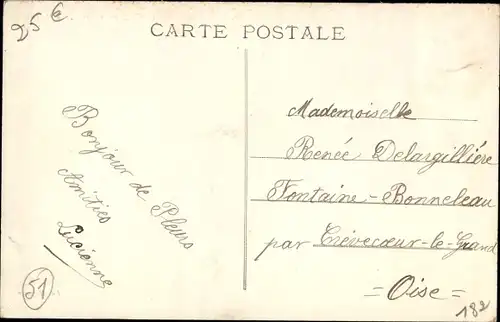 25€
CARTE POSTALE
Bonjour de Pleurs
Amitiés
Lucienne
51
Mademoiselle
Renée Delargillière
Fontaine-Bonneleau
par Crèvecœur-le-Grand
= Oise =
182